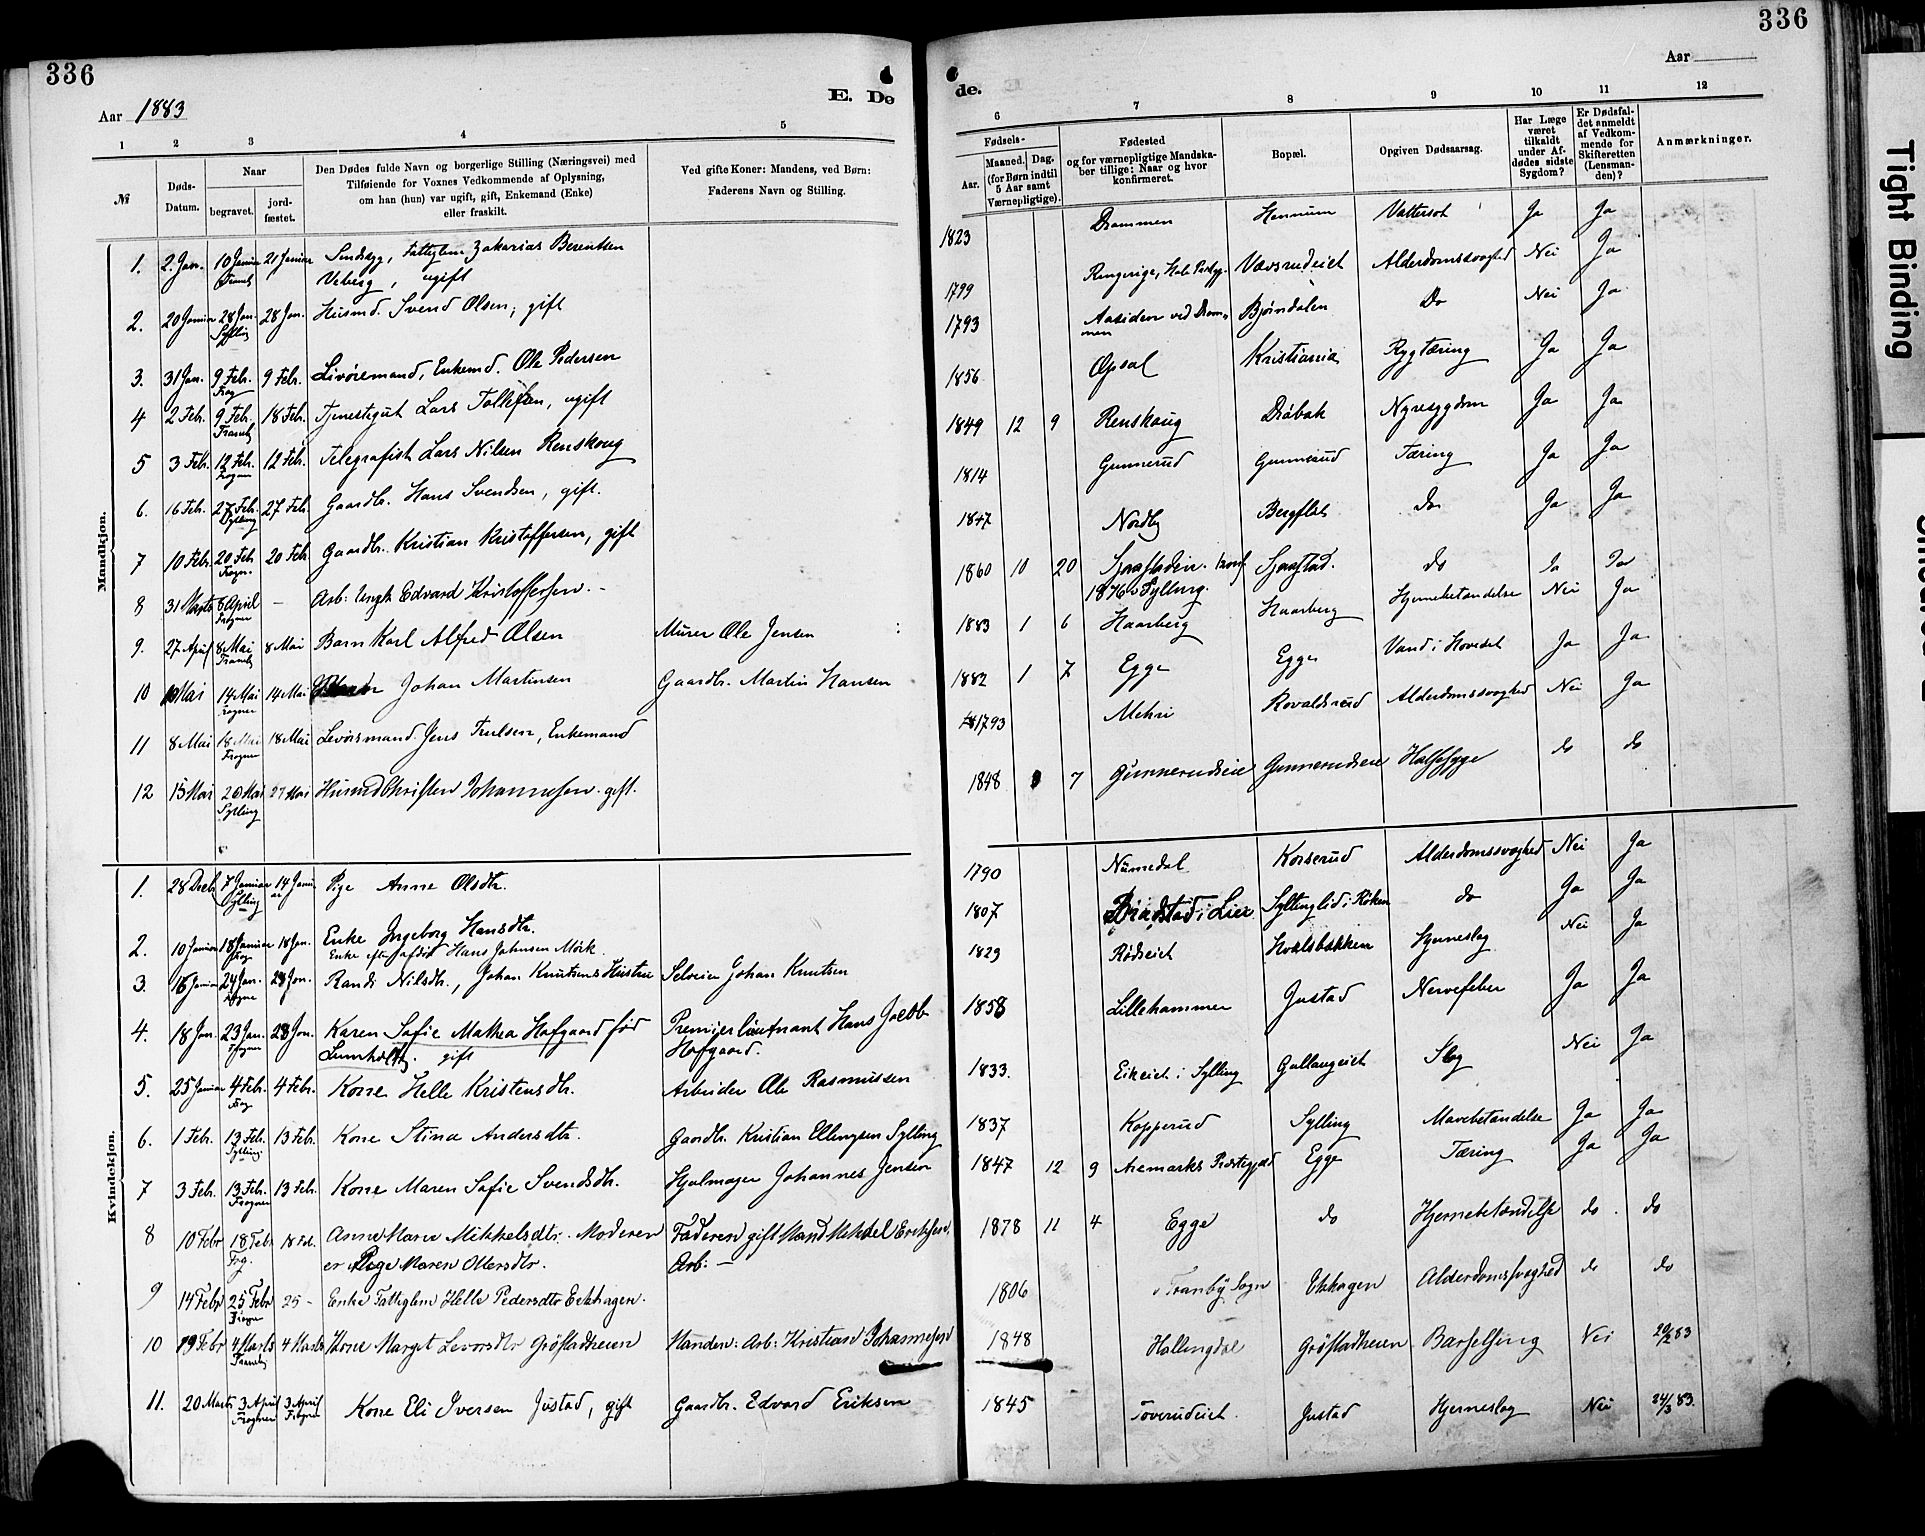 336
336
Aar 1883
E. Dø
de.
Aar
1 2 3 4 5
6 7 8 9 10 11 12
№
Døds-Datum.
Naar
begravet.
jord-fæstet.
Den Dødes fulde Navn og borgerlige Stilling (Næringsvei) med
Tilføiende for Voxnes Vedkommende af Oplysning,
om han (hun) var ugift, gift, Enkemand (Enke)
eller fraskilt.
Ved gifte Koner: Mandens, ved Børn:
Faderens Navn og Stilling.
Fødsels-
Aar.
Maaned. Dag.
(for Børn indtil
5 Aar samt
Værnepligtige).
Fødested
og for værnepligtige Mandska-
ber tillige: Naar og hvor
konfirmeret.
Bopæl.
Opgiven Dødsaarsag.
Har Læge
været
tilkaldt
under Af-
dødes sidste
Sygdom?
Er Dødsfal-
det anmeldt
af Vedkom-
mende for
Skifteretten
(Lensman-
den)?
Anmærkninger.
Mandkjøn.
1. 2 Jan. 10 Januar 21 Januar Sindssyg, Fattiglem Zakarias Berentsen
Viberg, ugift
1823 Drammen Hennum Vattersot Ja Ja
2. 20 Januar 28 Jan. Sylling 28 Jan. Husmd. Svend Olsen, gift
1799 Ringerige, Hole Vævsrudeiet Alderdomssvaghed Nei Ja
3. 31 Jan. 9 Febr. Frog 9 Febr. Livøremand, Enkemd. Ole Pedersen
1793 Aasiden ved Drammen Bjørndalen Do Nei Ja
4 2 Febr. 9 Feb. Tranby 18 Feb. Tjenestegut Lars Tollefsen, ugift
1856 Opsal Kristiania Rygtæring Ja Ja
5 3 Feb. 12 Feb. Frogner 12 Feb. Telegrafist Lars Nilsen Renskoug
1849 12 9 Renskoug Drøbak Nyresygdom Ja Ja
6. 16 Feb. 27 Feb. Sylling 27 Feb. Gaardbr. Hans Svendsen, gift.
1814 Gunnerud Gunnerud Tæring Ja Ja
7 10 Febr. 20 Feb. Frogn. 20 Feb. Gaardbr. Kristian Kristoffersen, gift
1847 Nordby Bergflat do Ja Ja
8 31 Marts 8 April Frogner – Arb: Ungk Edvard Kristoffersen. –
1860 10 20 Sjaastaden. konf. 1876 Sylling. Sjaastad. do Ja Ja
9. 27 April 8 Mai Tranby 8 Mai Barn Karl Alfred Olsen Murer Ole Jensen
1883 1 6 Haarberg Haarberg Hjernebetændelse Nei Ja
10 10 Mai 14 Mai Frogner 14 Mai Johan Martinsen Gaardbr. Martin Hansen
1882 1 7 Egge Egge Vand i Hovedet Ja Ja
11 8 Mai 18 Mai Frogner 18 Mai Levørsmand Jens Trulsen, Enkemand
1793 Mehri Rovaldsrud Alderdomssvaghed Nei Ja
12 15 Mai 20 Mai Sylling 27 Mai Husmd Christen Johannesen. gift.
1848 7 Gunnerudseie Gunnerudseie Halssyge do do
Kvindekjøn.
1. 28 Decb. 7 Januar Sylling 14 Januar Pige Anne Olsdtr.
1790 Numedal Korserud Alderdomssvaghed Nei Ja
2. 10 Januar 18 Januar Frog 18 Jan. Enke Ingeborg Hansdtr.
Enke efter Hans Johnsen Mørk
1807 i Lier Syllinglid i Røken do Ja Ja
3. 16 Januar 24 Jan. Frogner 28 Jan. Randi Nilsdtr., Johan Knutsens Hustru Selveier Johan Knutsen
1829 Rødseiet Hvalsbakken Hjerneslag Nei Ja
4. 18 Jan. 23 Jan. Frogner 28 Jan. Karen Sofie Mathea Hofgaard fød
Lumholtz. gift
Premierlieutnant Hans Jacob
Hofgaard.
1858 Lillehammer Justad Nervefeber Ja Ja
5. 25 Januar 4 Febr. Frog 4 Febr. Kone Helle Kristensdtr. Arbeider Ole Rasmussen
1833. Eikeiet i Sylling Gullaugeiet Slag Nei Ja
6. 1 Feb. 13 Feb. Sylling. 13 Feb. Kone Stina Andersdtr. Gaardbr. Kristian Ellingsen Sylling
1837 Kopperud Sylling Mavebetændelse Ja Ja
7 3 Feb. 13 Feb. Frogner 13 Feb. Kone Maren Sofie Svendsdtr. Hjulmager Johannes Jensen
1847 12 9 Aremarks Præstegjæld Egge Tæring Ja Ja
8 10 Febr 18 Febr Frg. 18 Feb. Anna Marie Mikkelsdtr. Moderen
er Pige Maren Olsersdtr.
Faderen gift Mand Mikkel Eriksen,
Arb: –
1878 11 4 Egge do Hjernebetændelse do. do
9 14 Febr 25 Febr Frogner 25 – Enke Fattiglem Helle Pedersdtr Eekhagen.
1806 Tranby Sogn Ekhagen Alderdomssvaghed do do
10 19 Febr 4 Marts Tranby 4 Marts Kone Margit Levorsdtr Grøstadheien Manden: Arb: Kristian Johannesen
1848 Hallingdal Grøstadheien Barselseng Nei 20/2 83
11. 20 Marts 3 April Frogner 3 April Frogner Kone Eli Iversen Justad, gift Gaardbr. Edvard Eriksen
1845 Toverudeiet. Justad Hjerneslag Nei 24/3 83.
Tight Binding